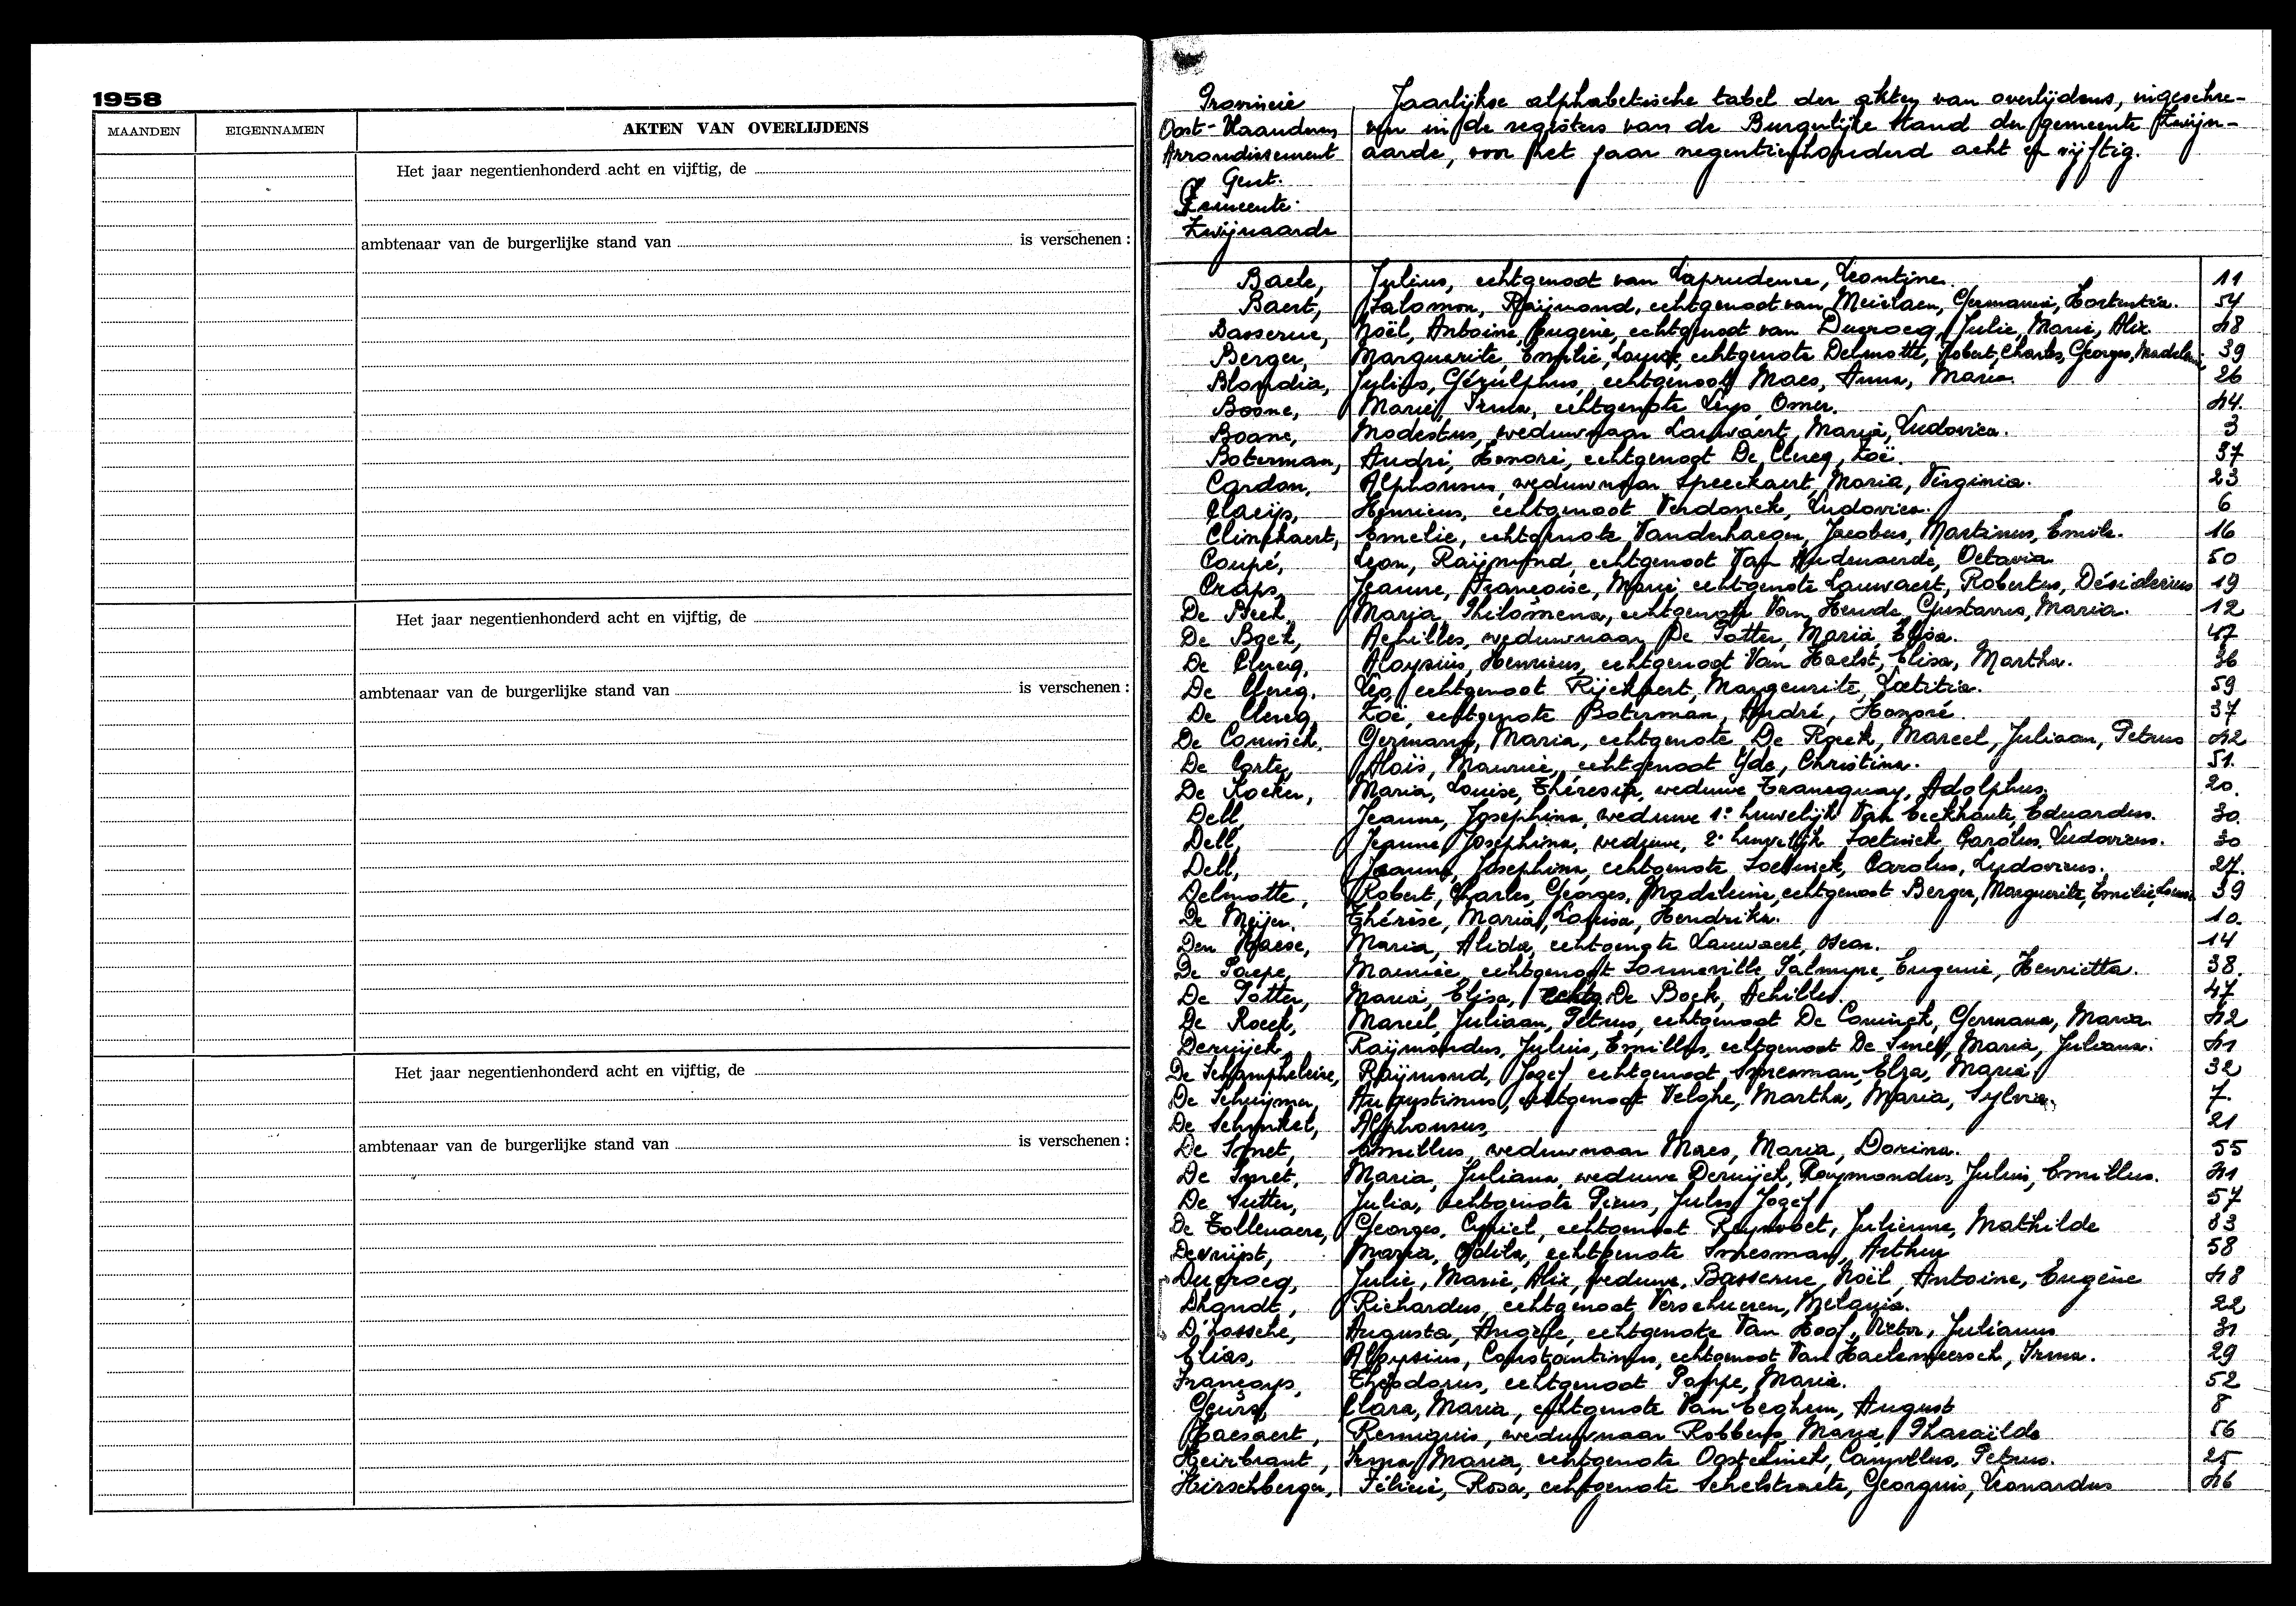 1958
MAANDEN EIGENNAMEN AKTEN VAN OVERLIJDENS
Het jaar negentienhonderd acht en vijftig, de
ambtenaar van de burgerlijke stand van is verschenen :
Het jaar negentienhonderd acht en vijftig, de
ambtenaar van de burgerlijke stand van is verschenen :
Het jaar negentienhonderd acht en vijftig, de
ambtenaar van de burgerlijke stand van is verschenen :
Provincie
Oost-Vlaanderen
Arrondissement
Gent.
Gemeente:
Zwijnaarde
Jaarlijkse alphabetische tabel der akten van overlijdens, ingeschre-
ven in de registers van de Burgerlijke stand der gemeente Zwijn-
aarde, voor het jaar negentienhonderd acht en vijftig.
Baele, Julius, echtgenoot van Laprudence, Leontine. 11
Baert, Salomon, Raijmond, echtgenoot van Meirlaen, Germania, Hortentia. 54
Basserue, Noël, Antoine, Eugenie, echtgenoot van Ducrocq, Julie, Marie, Alix 48
Berger, Marguerite, Emelie, Louise, echtgenote Delmotte, Robert, Charles, Georges, Madeleine 39
Blondia, Julius, Gérulphus, echtgenoot Maes, Anna, Maria. 26
Boone, Marie, Irma, echtgenote Leys, Omer. 44.
Boone, Modestus, weduwnaar Lauwaert, Maria, Ludovica. 3
Boterman, André, Honoré, echtgenoot De Clercq, Zoë. 37
Cardon, Alphonsus, weduwnaar Speeckaert, Maria, Virginia. 23
Claeijs, Henricus, echtgenoot Verdonck, Ludovica. 6
Clinckaert, Emelie, echtgenote Vanderhaegen, Jacobus, Martinus, Emile. 16
Coupé, Leon, Raijmond, echtgenoot Van Audenaerde, Octavia 50
Craps, Jeanne, Françoise, Marie, echtgenote Lauwaert, Robertus, Désiderius 19
De Beck, Maria, Philomena, echtgenote Van Hende, Gustavus, Maria. 12
De Bock, Achilles, weduwnaar De Potter, Maria, Elisa. 47
De Clercq, Aloysius, Henricus, echtgenoot Van Haelst, Elisa, Martha. 36
De Clercq, Leo, echtgenoot Rijckaert, Margeurite, Laetitia. 59
De Clercq, Zoë, echtgenote Boterman, André, Honoré. 37
De Coninck, Germana, Maria, echtgenote De Roeck, Marcel, Juliaan, Petrus 42
De Corte, Aloïs, Maurice, echtgenoot Yde, Christina. 51.
De Koker, Maria, Louise, Thérésia, weduwe Trancquay, Adolphus. 20.
Dell, Jeanne, Josephina, weduwe 1° huwelijk Van Eeckhaute, Eduardus. 30.
Dell, Jeanne, Josephina, weduwe, 2° huwelijk Soetinck, Carolus, Ludovicus. 30
Dell, Jeanne, Josephina, echtgenote Soetinck, Carolus, Ludovicus. 27.
Delmotte, Robert, Charles, Georges, Madeleine, echtgenoot Berger, Marguerite, Emilie, Louise 39
De Meijer, Thérèse, Maria, Louisa, Hendrika. 10.
Den Haese, Maria, Alida, echtgenote Lauwaert, Oscar. 14
De Paepe, Maurice, echtgenoot Sonneville, Palmyre, Eugenie, Henrietta. 38.
De Potter, Maria, Elisa, echtg. De Bock, Achilles. 47
De Roeck, Marcel, Juliaan, Petrus, echtgenoot De Coninck, Germana, Maria 42
Deruijck, Raijmondus, Julius, Emillus, echtgenoot De Smet, Maria, Juliana. 41
De Schampheleire, Raijmond, Jozef, echtgenoot Impesman, Elza, Maria 32
De Schuijmer, Augustinus, echtgenoot Velghe, Martha, Maria, Sylvia 7.
De Schinkel, Alphonsus, 21
De Smet, Emillus, weduwnaar Maes, Maria, Dorina. 55
De Smet, Maria, Juliana, weduwe Deruijck, Raymondus, Julius, Emillus. 41
De Sutter, Julia, echtgenote Picus, Jules, Jozef 57
De Tollenaere, Georges, Cyriel, echtgenoot Reynvoet, Julienne, Mathilde 53
Devrijst, Maria, Odila, echtgenote Impesman, Arthur 58
Ducrocq, Julie, Marie, Alix, weduwe, Basserue, Noël, Antoine, Eugène 48
Dhondt, Richardus, echtgenoot Verschueren, Melania. 22
D'Hossche, Augusta, Angèle, echtgenote Van Hoof, Victor, Julianus 31
Elias, Aloysius, Constantinus, echtgenoot Van Haelemeersch, Irma. 29
Françoys, Theodorus, echtgenoot Pappe, Maria. 52
Geürs, Clara, Maria, echtgenote Van Eeghem, August 8
Haesaert, Remiguis, weduwnaar Robbens, Maria, Pharaïlde 56
Heirbrant, Irma, Maria, echtgenote Oostelinck, Camillus, Petrus. 25
Hirschberger, Félicie, Rosa, echtgenote Schelstraete, Georgius, Leonardus 46